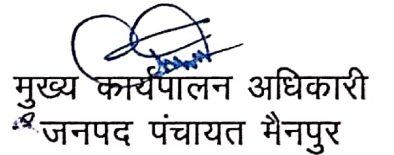 मुख्य कार्यपालन अधिकारी
जनपद पंचायत मैनपुर